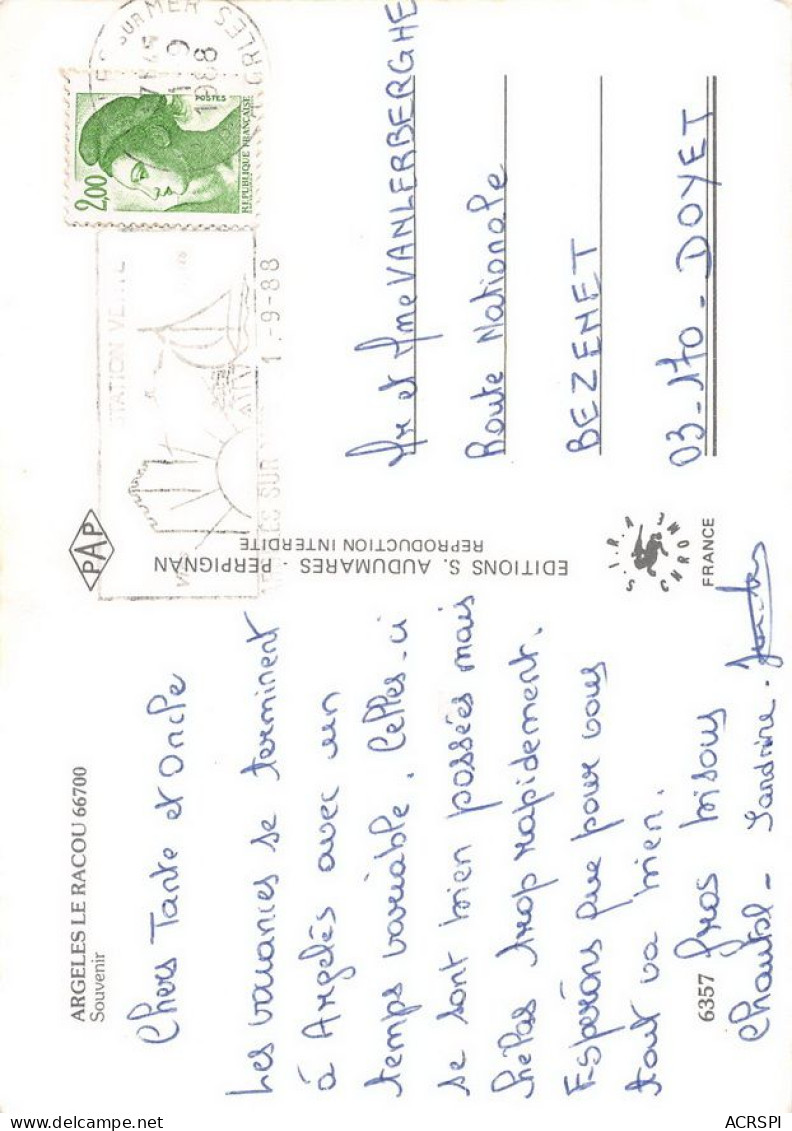 ARGELES LE RACOU 66700
Souvenir
Chers Tante et Oncle
Les vacances se terminent
à Argelès avec un
temps variable. Celles-ci
se sont bien passées mais
hélas trop rapidement.
Espérons que pour vous
tout va bien.
Gros bisous
Chantal - Sandrine -
6357
PAP
EDITIONS S. AUDUMARES - PERPIGNAN
REPRODUCTION INTERDITE
S.I.R.A CHROME
FRANCE
SUR MER
1988
2,00
POSTES
REPUBLIQUE FRANCAISE
STATION VERTE
1.-9-88
Mr et Mme VANLERBERGHE
Route Nationale
BEZENET
03-170-DOYET
ACRSPI